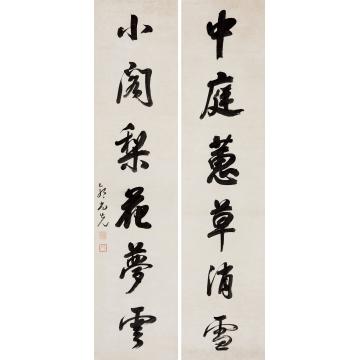 中庭蕙草消雪
小閣梨花夢雲